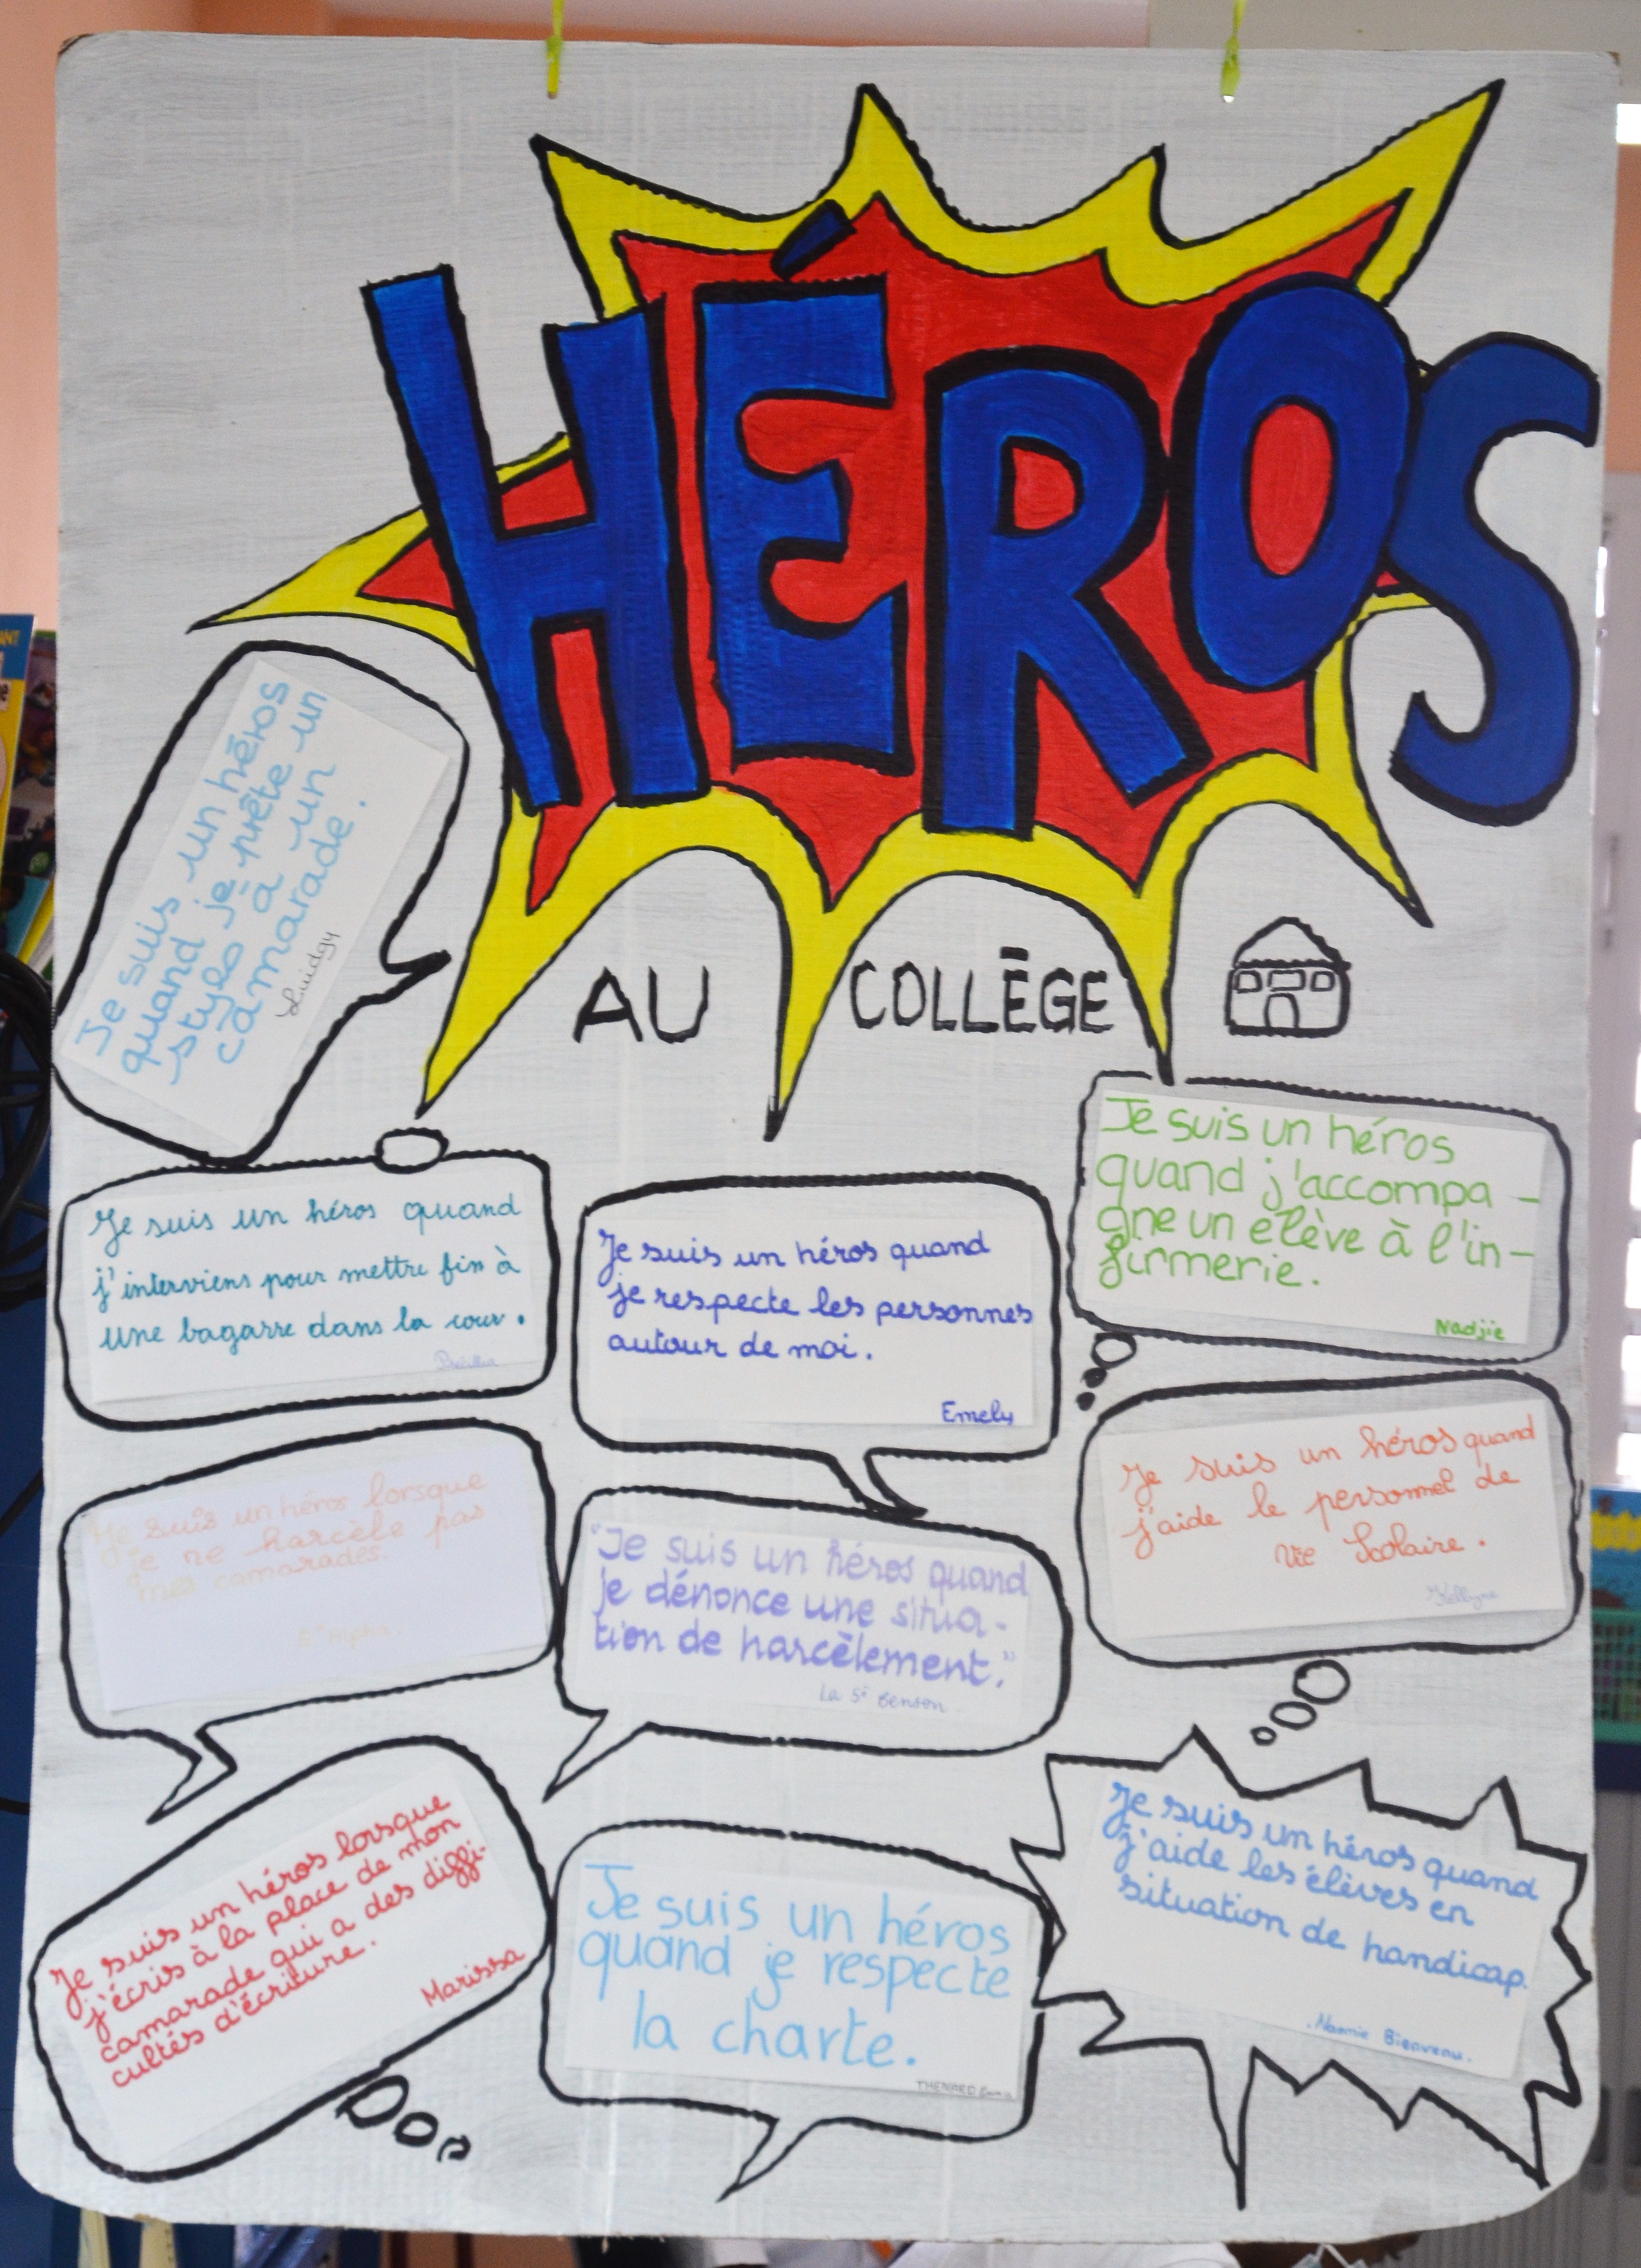 HÉROS
AU COLLĒGE
Je suis un héros
quand je prête un
stylo à un
camarade.
Luidgy
Je suis un héros quand
j'interviens pour mettre fin à
une bagarre dans la cour.
Je suis un héros quand
je respecte les personnes
autour de moi.
Emely
Je suis un héros
quand j'accompa-
gne un élève à l'in-
firmerie.
Nadjie
Je suis un héros lorsque
je ne harcèle pas
mes camarades.
5e Alpha
"Je suis un héros quand
je dénonce une situa-
tion de harcèlement."
La 5e Benson
Je suis un héros quand
j'aide le personnel de
Vie Scolaire.
Kellyna
Je suis un héros lorsque
j'écris à la place de mon
camarade qui a des diffi-
cultés d'écriture.
Marissa
Je suis un héros
quand je respecte
la charte.
THENARD
Je suis un héros quand
j'aide les élèves en
situation de handicap.
Naomie Bienvenu.